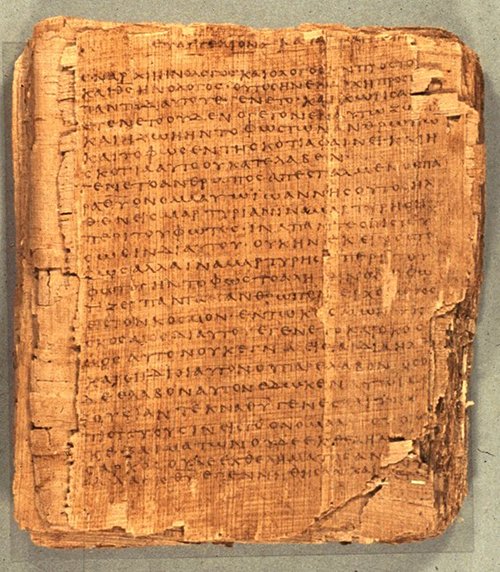 ΕΥΑΓΓΕΛΙΟΝ ΚΑΤΑ
ΕΝ ΑΡΧΗ ΗΝ Ο ΛΟΓΟΣ ΚΑΙ Ο ΛΟΓΟΣ
ΚΑΙ ΘΣ ΗΝ Ο ΛΟΓΟΣ ΟΥΤΟΣ ΗΝ ΕΝ ΑΡΧΗ ΠΡΟΣ
ΠΑΝΤΑ ΔΙ ΑΥΤΟΥ ΕΓΕΝΕΤΟ ΚΑΙ ΧΩΡΙΣ
ΕΓΕΝΕΤΟ ΟΥΔΕΝ Ο ΓΕΓΟΝΕΝ ΕΝ ΑΥΤΩ
ΚΑΙ Η ΖΩΗ ΗΝ ΤΟ ΦΩΣ ΤΩΝ ΑΝΘΡΩΠΩΝ
ΚΑΙ ΤΟ ΦΩΣ ΕΝ ΤΗ ΣΚΟΤΙΑ ΦΑΙΝΕΙ ΚΑΙ Η
ΣΚΟΤΙΑ ΑΥΤΟ ΟΥ ΚΑΤΕΛΑΒΕΝ
ΕΓΕΝΕΤΟ ΑΝΘΡΩΠΟΣ ΑΠΕΣΤΑΛΜΕΝΟΣ ΠΑ
ΡΑ ΘΥ ΟΝΟΜΑ ΑΥΤΩ ΙΩΑΝΝΗΣ ΟΥΤΟΣ ΗΛ
ΘΕΝ ΕΙΣ ΜΑΡΤΥΡΙΑΝ ΙΝΑ ΜΑΡΤΥΡΗΣΗ
ΠΕΡΙ ΤΟΥ ΦΩΤΟΣ ΙΝΑ ΠΑΝΤΕΣ ΠΙΣΤΕΥ
ΣΩΣΙΝ ΔΙ ΑΥΤΟΥ ΟΥΚ ΗΝ ΕΚΕΙΝΟΣ ΤΟ
ΦΩΣ ΑΛΛΑ ΙΝΑ ΜΑΡΤΥΡΗΣΗ ΠΕΡΙ ΤΟΥ
ΦΩΤΟΣ ΗΝ ΤΟ ΦΩΣ ΤΟ ΑΛΗΘΙΝΟΝ Ο ΦΩ
ΤΙΖΕΙ ΠΑΝΤΑ ΑΝΘΡΩΠΟΝ ΕΡΧΟΜΕΝΟΝ
ΕΙΣ ΤΟΝ ΚΟΣΜΟΝ ΕΝ ΤΩ ΚΟΣΜΩ ΗΝ
ΚΟΣΜΟΣ ΔΙ ΑΥΤΟΥ ΕΓΕΝΕΤΟ ΚΑΙ Ο ΚΟΣ
ΜΟΣ ΑΥΤΟΝ ΟΥΚ ΕΓΝΩ ΕΙΣ ΤΑ ΙΔΙΑ ΗΛΘΕ
ΚΑΙ ΟΙ ΙΔΙΟΙ ΑΥΤΟΝ ΟΥ ΠΑΡΕΛΑΒΟΝ ΟΣΟΙ
ΔΕ ΕΛΑΒΟΝ ΑΥΤΟΝ ΕΔΩΚΕΝ ΑΥΤΟΙΣ ΕΞ
ΟΥΣΙΑΝ ΤΕΚΝΑ ΘΥ ΓΕΝΕΣΘΑΙ
ΠΙΣΤΕΥΟΥΣΙΝ ΕΙΣ ΤΟ ΟΝΟΜΑ
ΟΥΚ ΕΞ ΑΙΜΑΤΩΝ ΟΥΔΕ ΕΚ ΘΕΛΗΜΑ
ΣΑΡΚΟΣ ΟΥΔΕ ΕΚ ΘΕΛΗΜΑΤΟΣ ΑΝ
ΑΛΛΑ ΕΚ ΘΥ ΕΓΕΝΝΗΘΗΣΑΝ ΚΑΙ